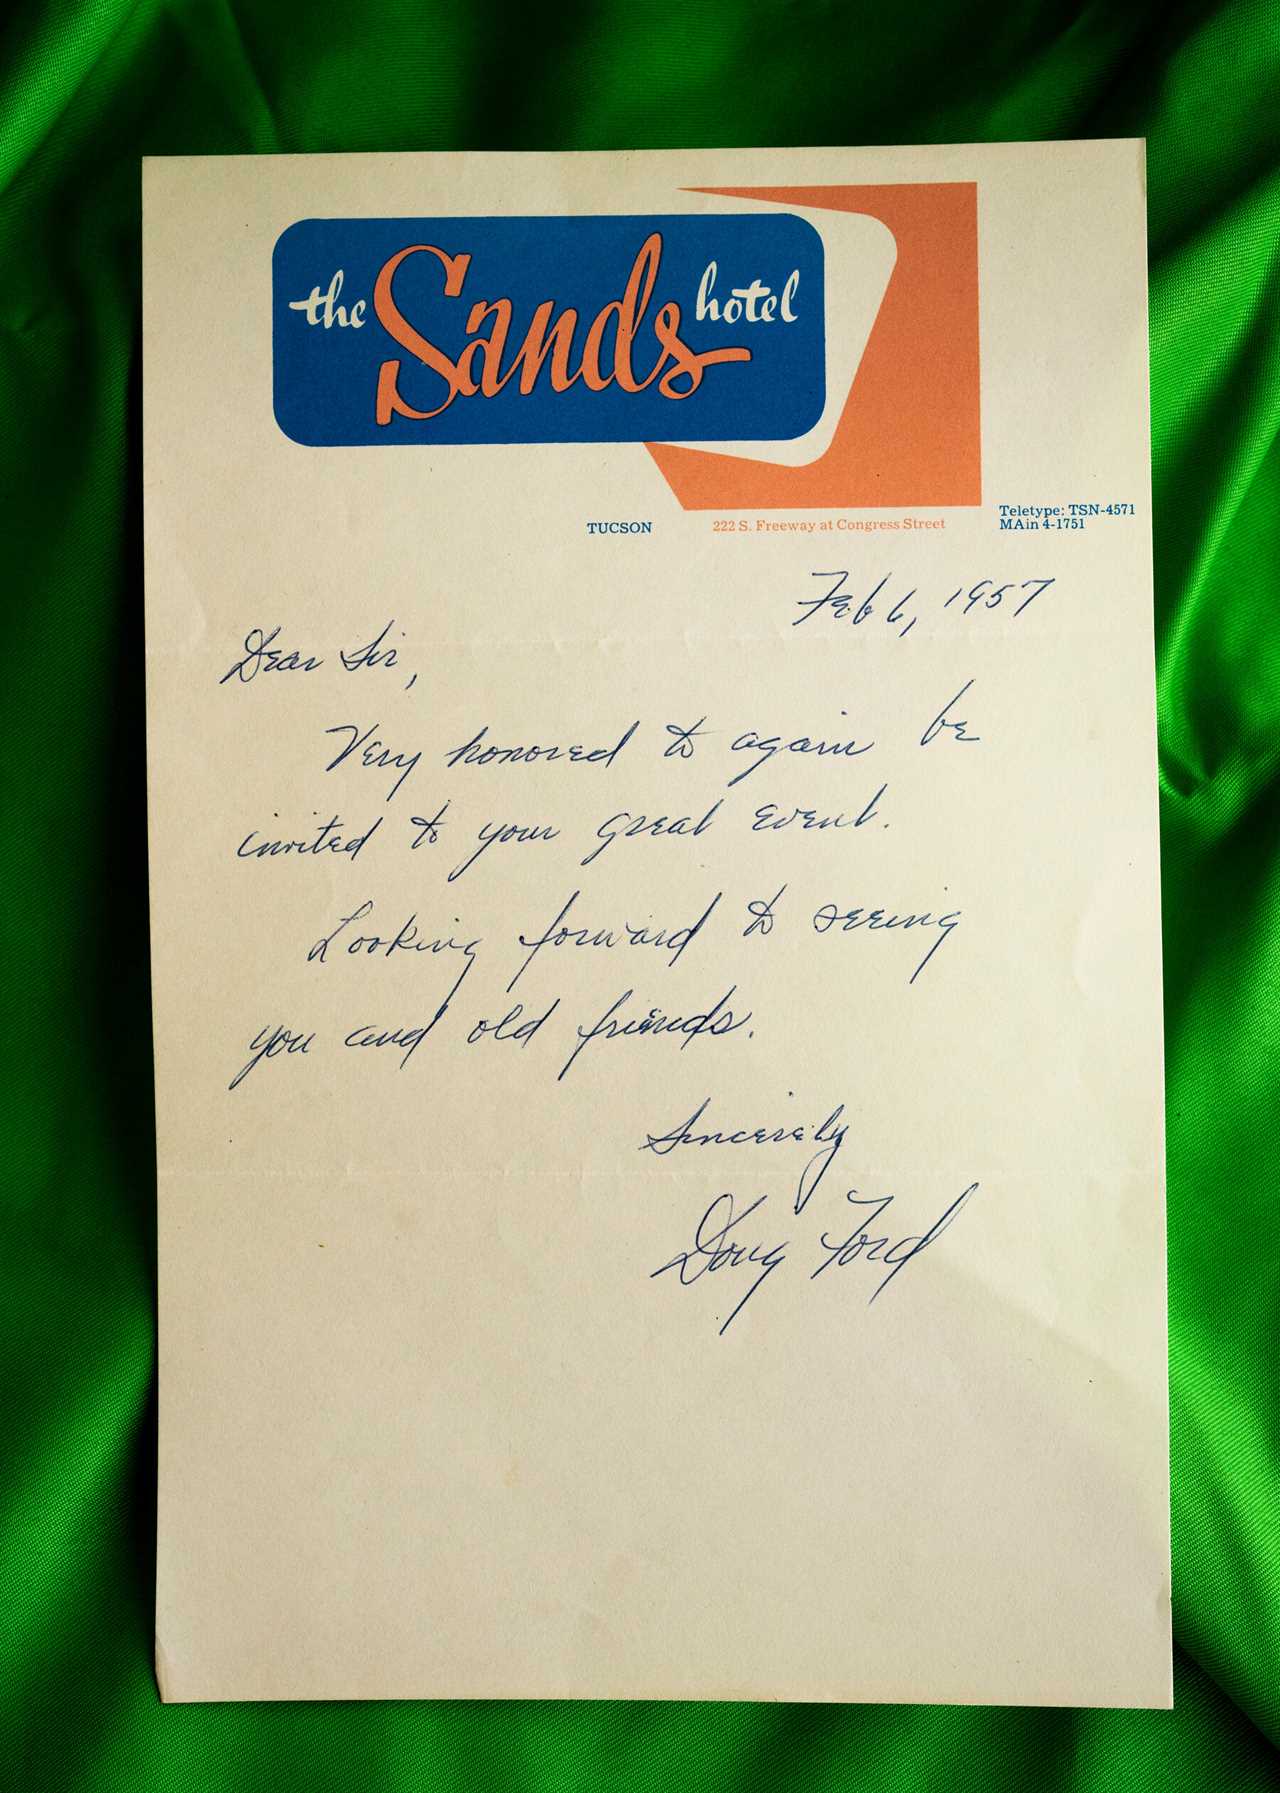 the Sands hotel
TUCSON 222 S. Freeway at Congress Street
Teletype: TSN-4571
MAin 4-1751
Feb 6, 1957
Dear Sir,
Very honored to again be
invited to your great event.
Looking forward to seeing
you and old friends.
Sincerely
Doug Ford